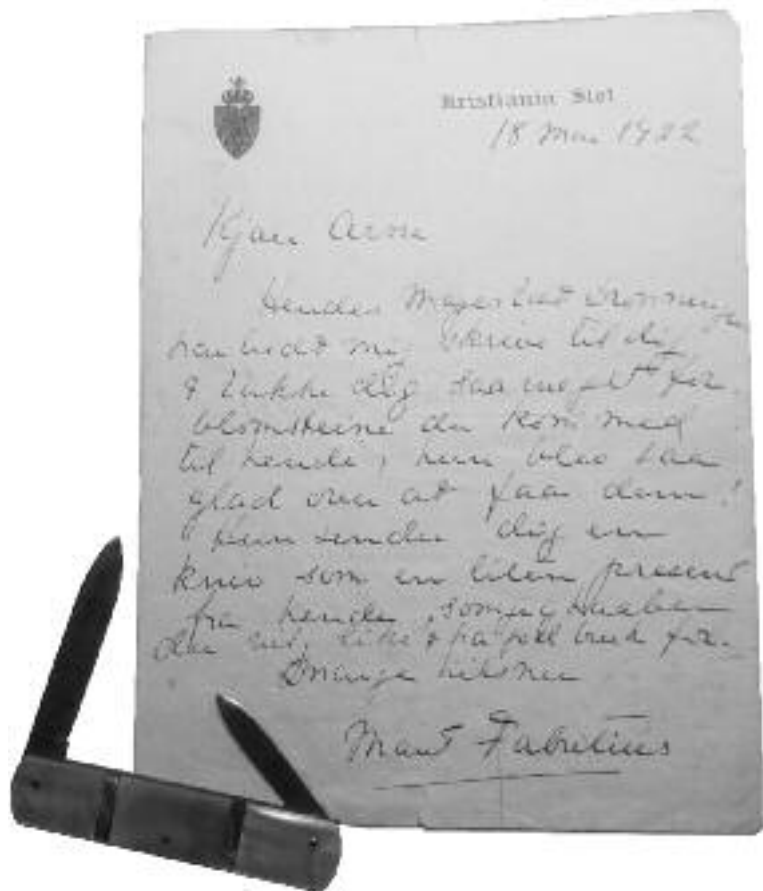 Kristiania Slot
18 Mai 1922
Kjære Arne
Hendes Majestæt Dronningen
har bedt mig skrive til dig
& takke dig saa meget for
blomsterne du kom med
til hende, hun blev saa
glad over at faa dem!
Hun sender dig en
kniv som en liten present
fra hende, som jeg haaber
du vil like & faa god bruk for.
Mange hilsner
Maud Fabritius